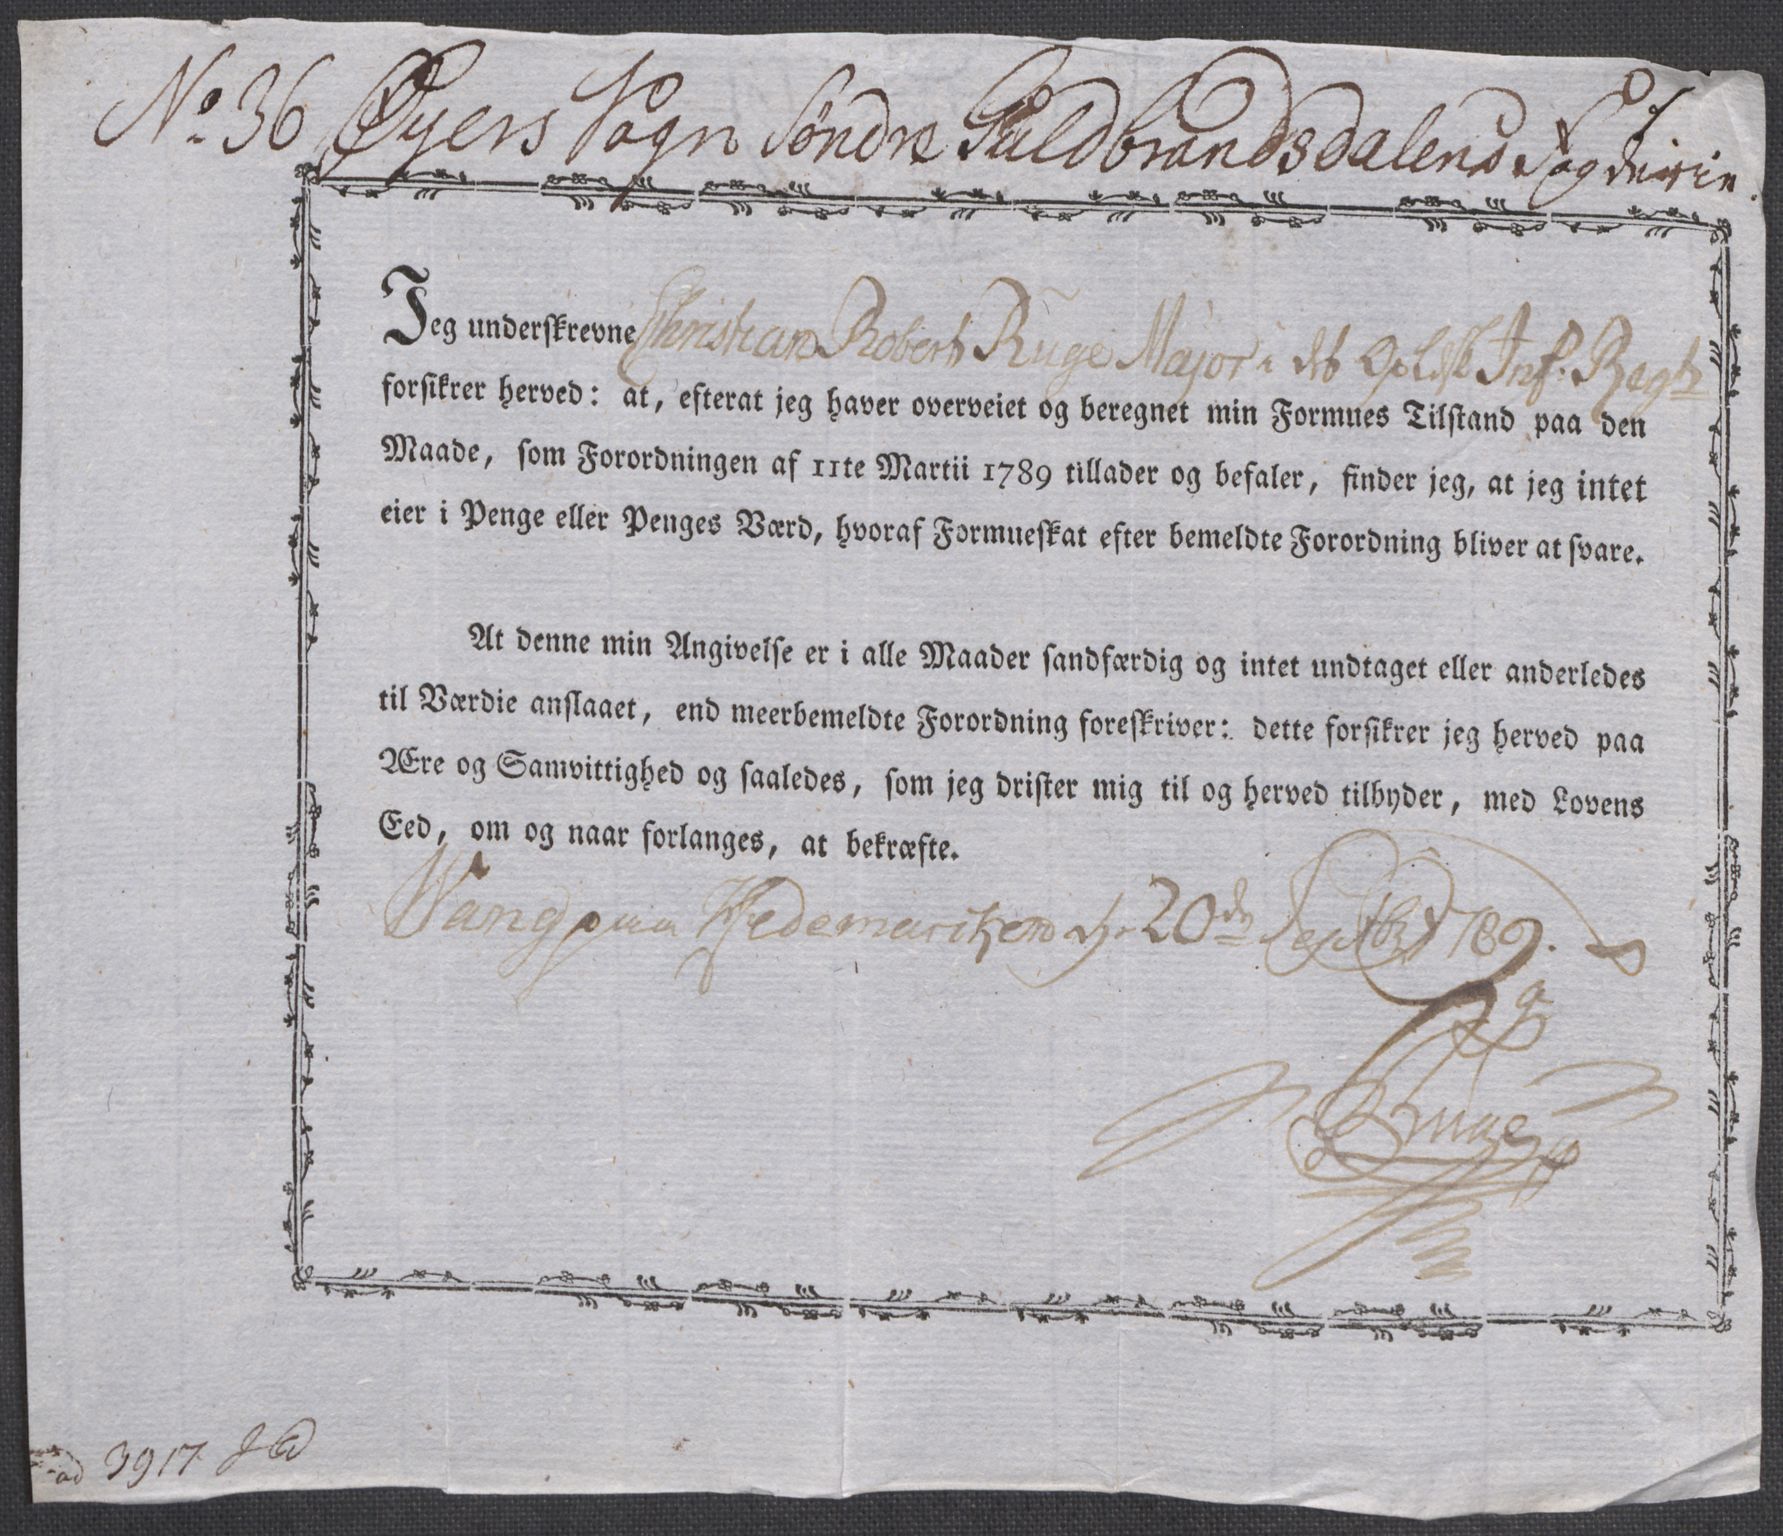 No. 36 Øyers Sogn Søndre Guldbrandsdalens Fogderie.
Jeg underskrevne Christian Robert Ruge Major i det Opl: Inf: Regt:
forsikrer herved: at, efterat jeg haver overveiet og beregnet min Formues Tilstand paa den
Maade, som Forordningen af 11te Martii 1789 tillader og befaler, finder jeg, at jeg intet
eier i Penge eller Penges Værd, hvoraf Formueskat efter bemeldte Forordning bliver at svare.
At denne min Angivelse er i alle Maader sandfærdig og intet undtaget eller anderledes
til Værdie anslaaet, end meerbemeldte Forordning foreskriver: dette forsikrer jeg herved paa
Ære og Samvittighed og saaledes, som jeg drister mig til og herved tilbyder, med Lovens
Eed, om og naar forlanges, at bekræfte.
Wang paa Hedemarken d. 20de Septbr 1789.
Ruge
ad 3917